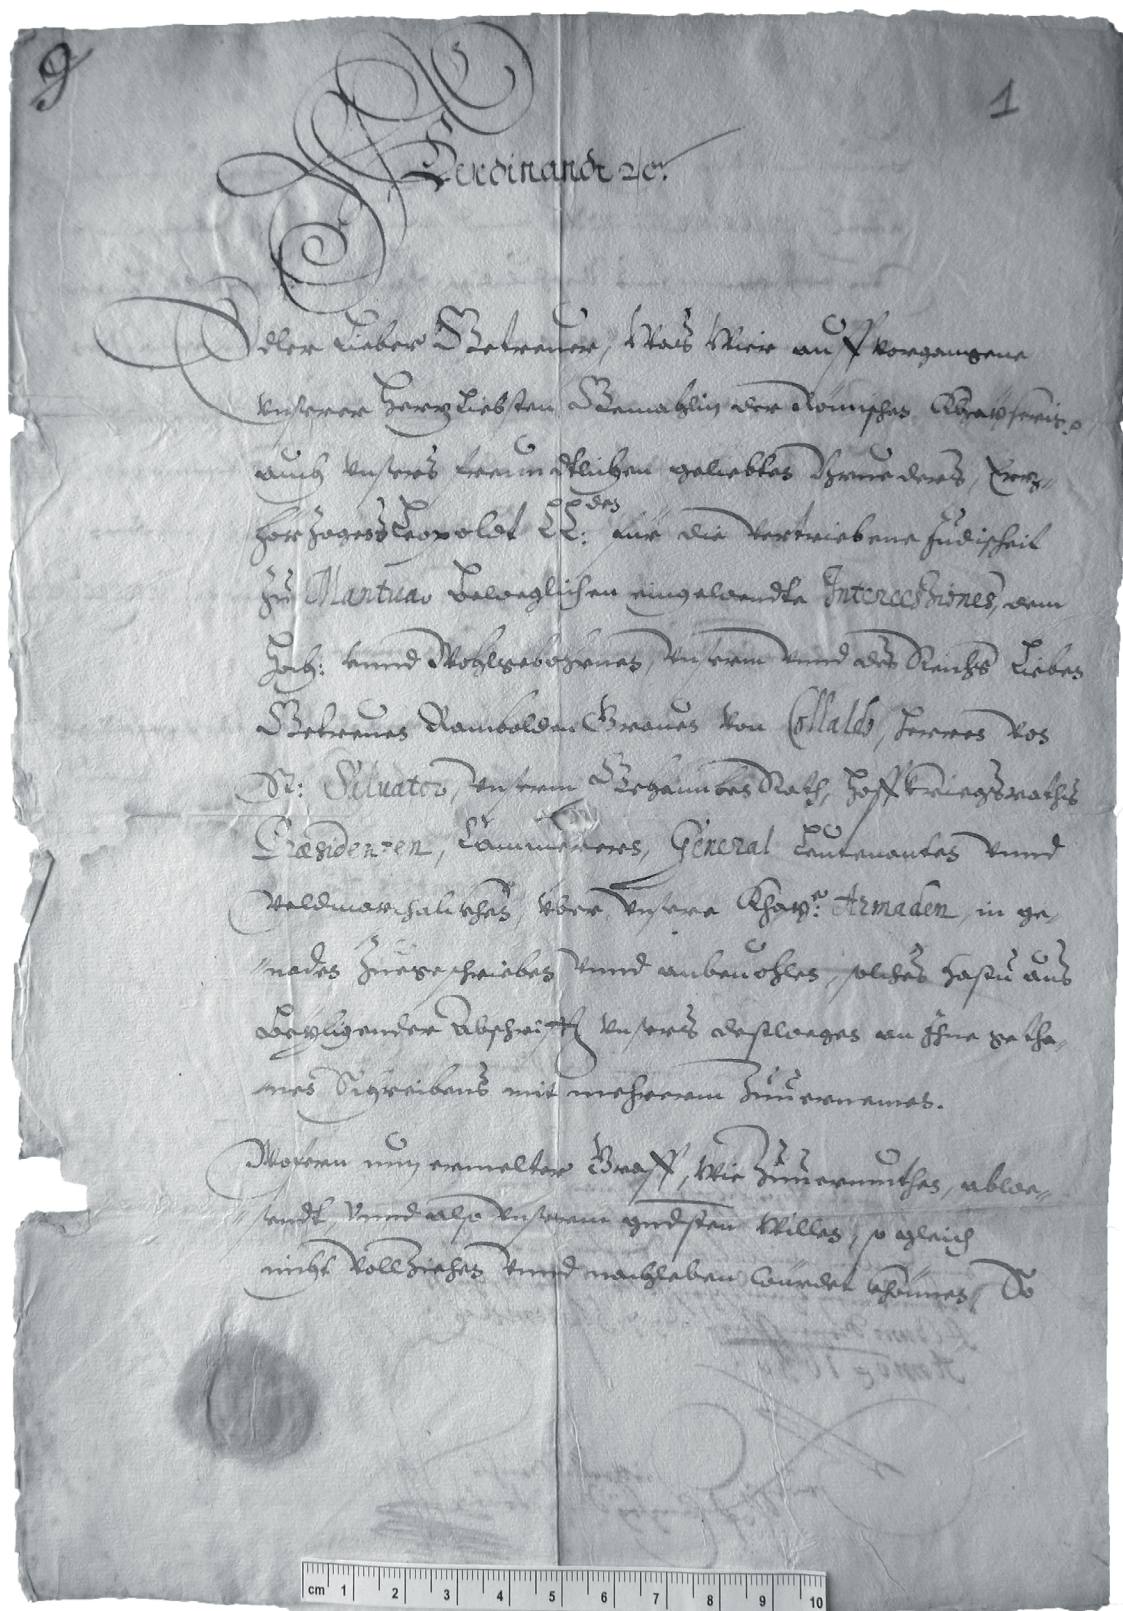 9
1
Ferdinandt ꝛc.
Edler Lieber Getreuer, Was Wier auff vorgangene
Vnserer Herzliebsten Gemahlin der Römischen Khayserin,
auch Vnsers freundtlichen geliebten Brueders, Erz-
herzogens Leopoldt LL:den für die vertriebene Judischeit
zu Mantua beweglichen eingewendte Intercessiones, dem
Hoch: vnnd Wohlgebohrnen, Vnserm vnnd des Reichs Lieben
Getreuen Rambolden Grauen von Collalto, Herren von
St: Siluator, Vnserm Gehaimben Rath, Hoffkriegsraths
Præsidenten, Cammerern, General Leutenanten vnnd
Veldmarschalckhen, vber Vnsere Khay: Armaden, in ge-
naden zuegeschrieben vnnd anbeuohlen, solches hastu aus
beyligender Abschrifft Vnsers destwegen an Ihne getha-
nen Schreibens mit mehrerm zuuernemen.
Wofern nun ermelter Graff, wie zuuermuthen, abwe-
sendt, vnnd also vnserem gndsten Willen, so gleich
nicht vollziehen vnnd nachleben wurdet khönnen, So
Anno
cm 1 2 3 4 5 6 7 8 9 10